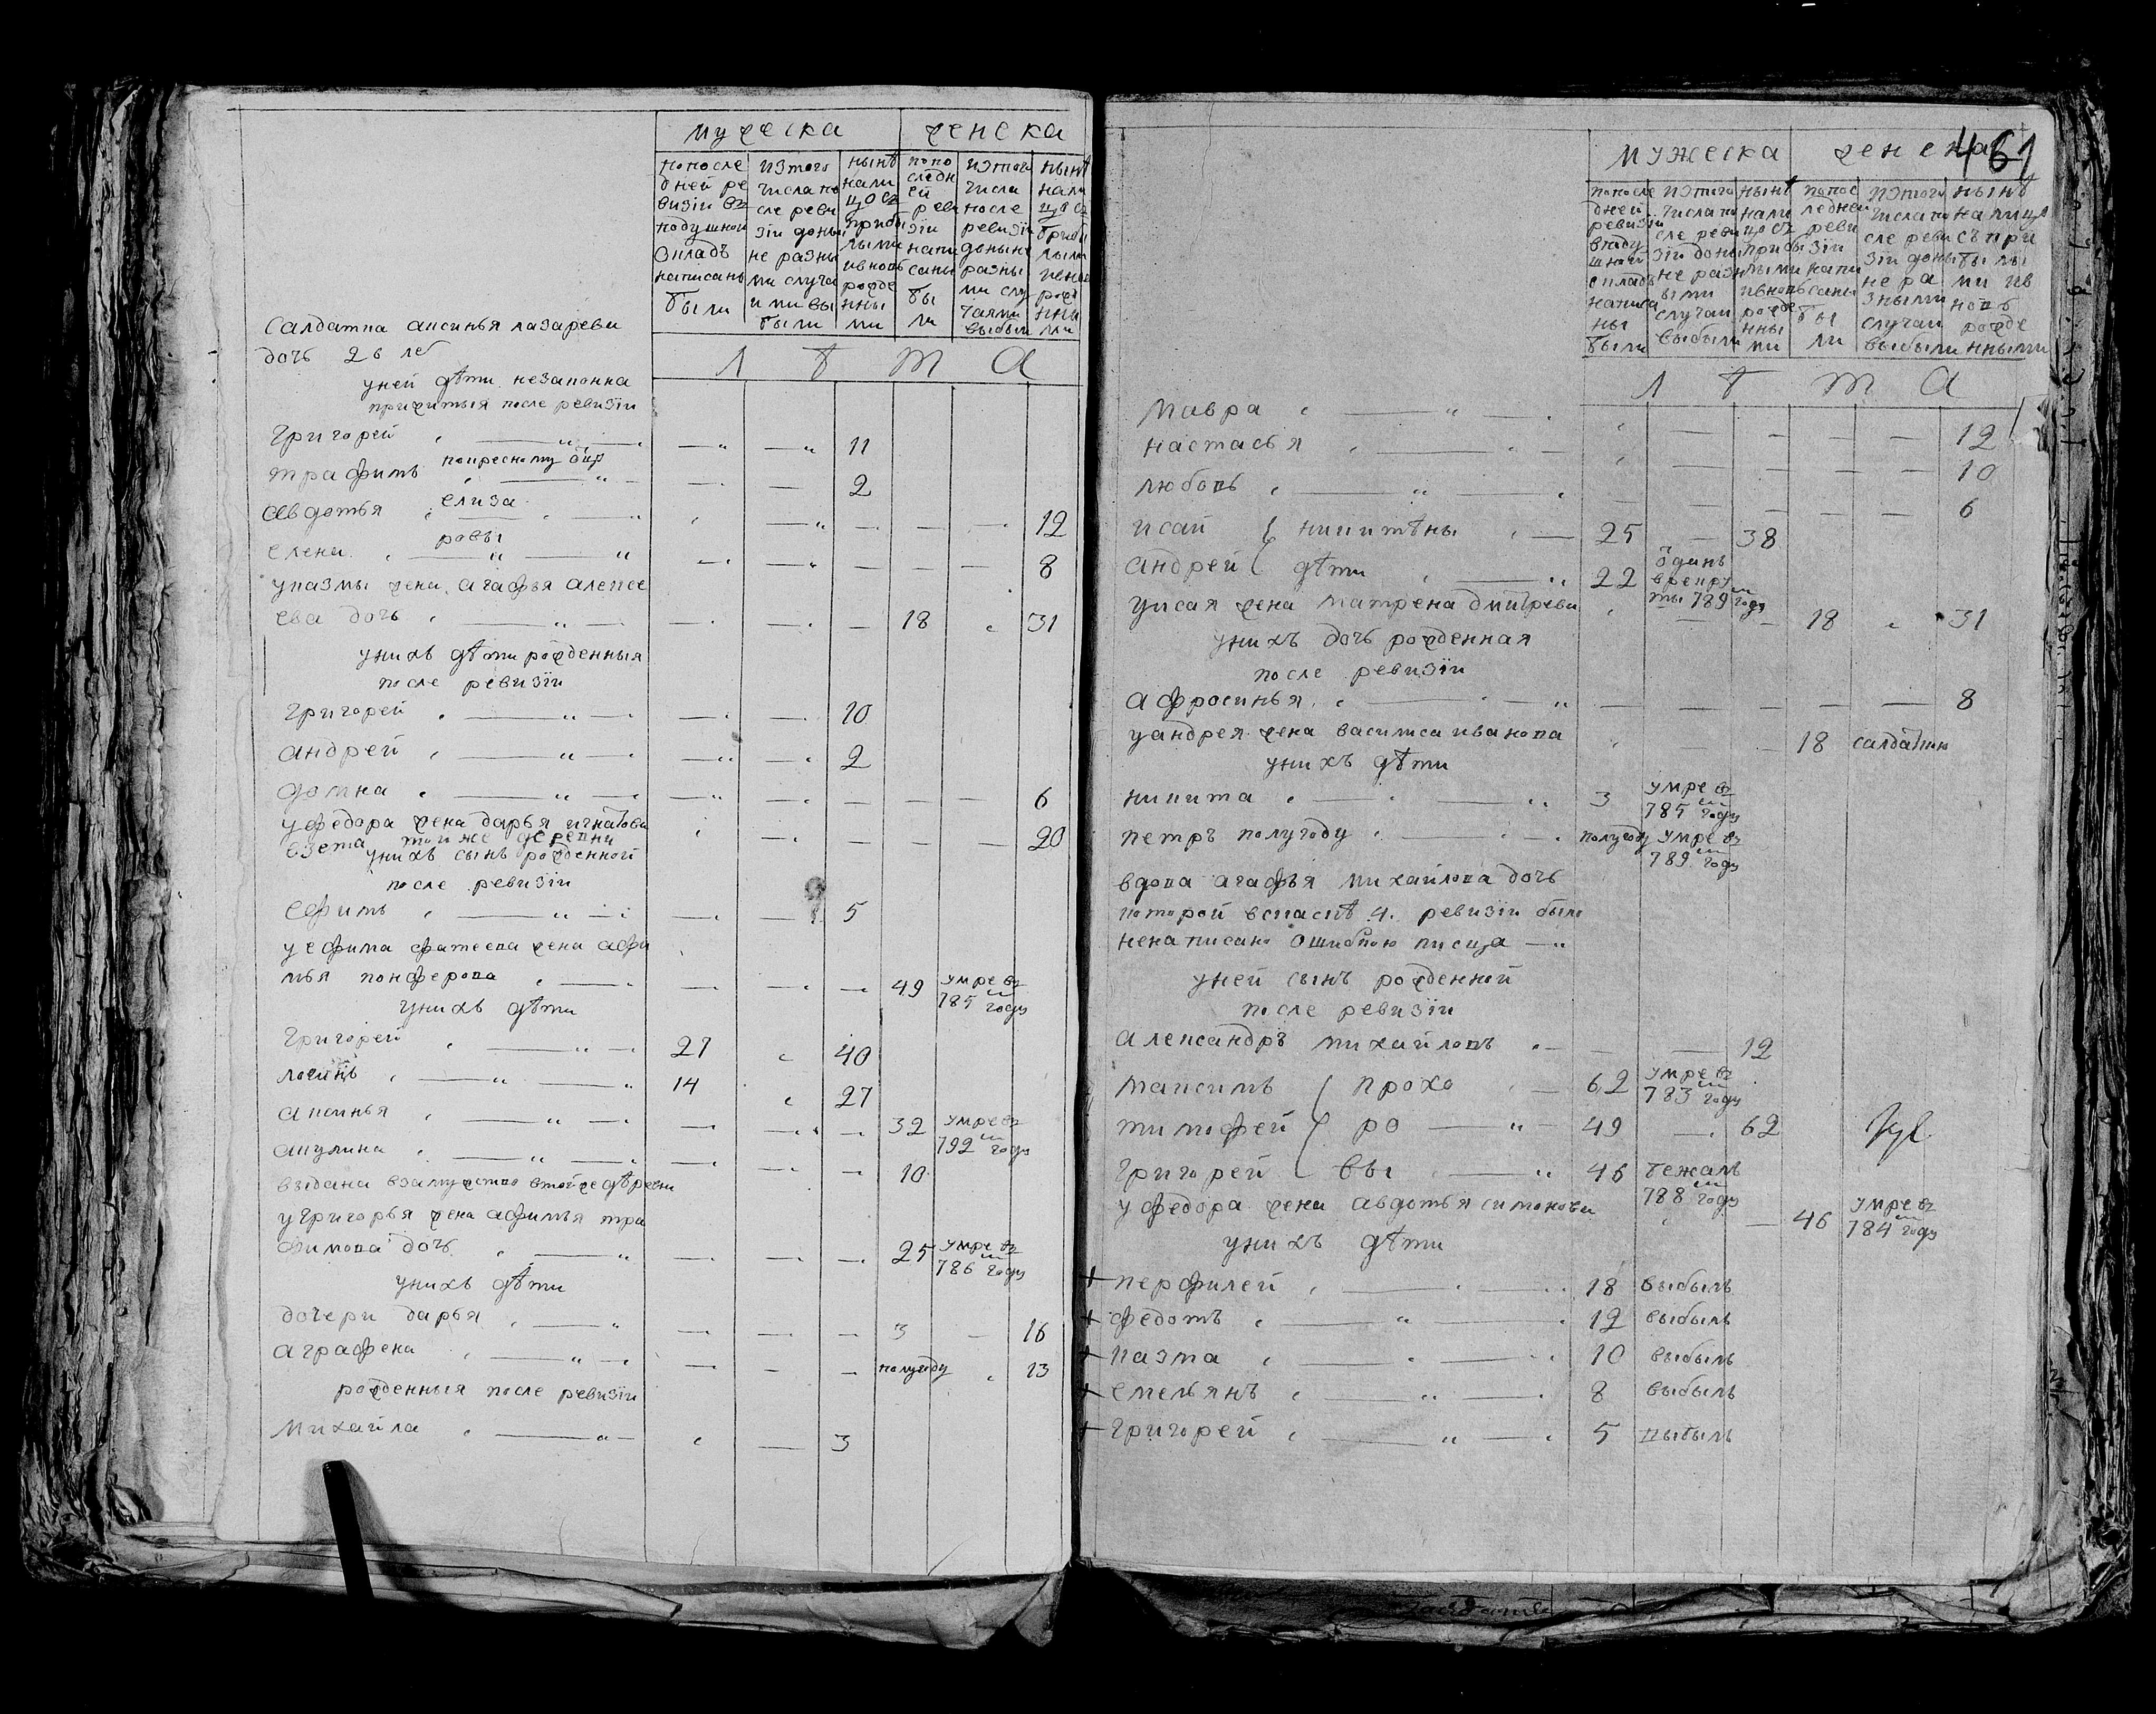 мужеска женска
попосле дней ревизіи въ подушной окладъ написаны были
изтого числа после ревизіи доныне разными случаи ми выбыли
ныне нали цо съ прибылыми ивновь рожде нными
попо следн ей ревизіи написаны были
изтого числа после ревизіи доныне разны ми случаями выбыли
нынѣ нали цо съ прибы лыми ивновь рожд нны ми
л ѣ т а
салдатка аксинья лазарева
дочь 26 лет
уней дѣти незаконна
прижитыя после ревизіи
григорей 11
трафимъ покресному оцу 2
авдотья елиза 12
елена ровы 8
указмы жена агафья алексе
ева дочь 18 31
унихъ дѣти рожденныя
после ревизіи
григорей 10
андрей 2
домна 6
уфедора жена дарья игнатова 20
взета тои же деревни
унихъ сынъ рожденной
после ревизіи
ефимъ 5
уефима фатеева жена афи
мья панферова 49 умре въ 785 м году
унихъ дѣти
григорей 27 40
логинъ 14 27
аксинья 32 умре въ 792 м году
акулина 10
выдана взамужство втойже дѣревни
угригорья жена афимья тра
фимова дочь 25 умре въ 786 м году
унихъ дѣти
дочери дарья 3 16
аграфена полугоду 13
рожденныя после ревизіи
михайла 3
461
мужеска женска
попосле дней ревизіи вподу шной окладъ написа ны были
изтого числа по сле реви зіи доны не разн ыми случаи выбыли
нынѣ нали цо съ прибы лыми ивновь рожде нны ми
попос ледней реви зіи напи саны бы ли
изтого числа по сле реви зіи доны не ра зными случаи выбыли
нынѣ налицо съ при былы ми ив новь рожде нными
л ѣ т а
мавра 12
настасья 10
любовь 6
исай никитины 25 38
андрей дѣти 22 оданъ врекру ты 789 м году
уисая жена матрена дмитрева 18 31
унихъ дочь рожденная
после ревизіи
афросинья 8
уандрея жена василиса иванова 18 салдаткою
унихъ дѣти
никита 3 умре въ 785 м году
петръ полугоду полугоду умре въ 789 м году
вдова агафья михайлова дочь
которой вспаскѣ 4. ревизіи было
ненаписано ошибкою писца
уней сынъ рожденной
после ревизіи
александръ михайловъ 12
максимъ прохо 62 умре въ 783 м году
тимофей ро 49 62
григорей вы 46 бежалъ 788 м году
уфедора жена авдотья симонова 46 умре въ 784 м году
унихъ дѣти
+ перфилей 18 выбылъ
+ федотъ 12 выбылъ
+ казма 10 выбылъ
+ емельянъ 8 выбылъ
+ григорей 5 выбылъ